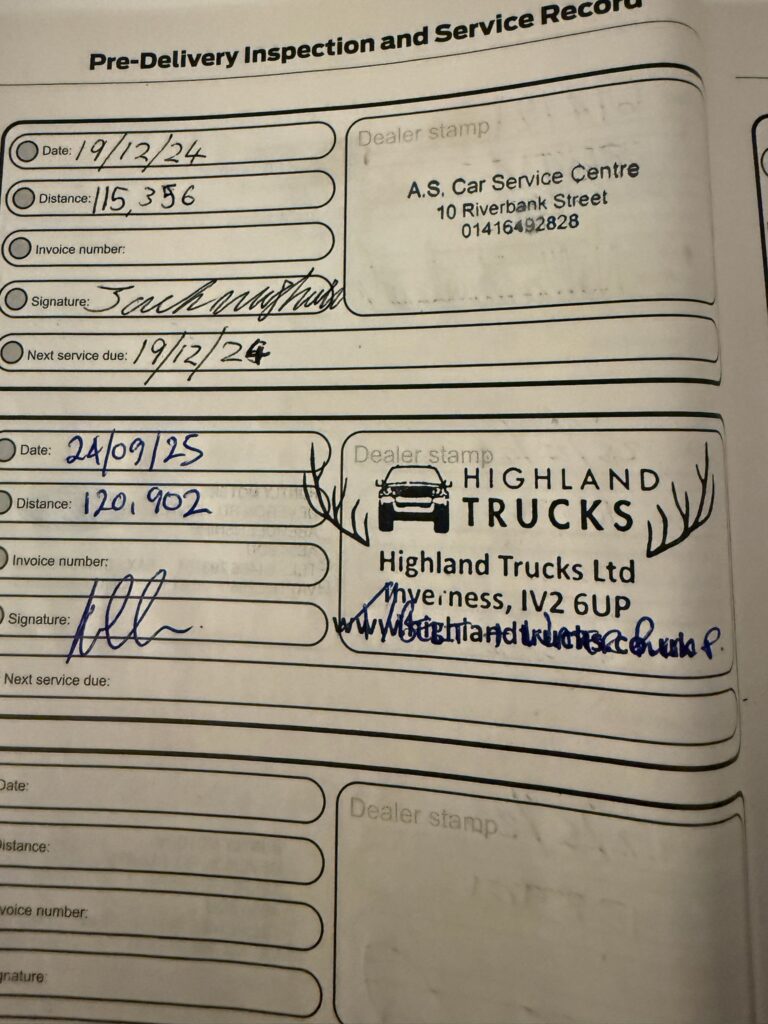 Pre-Delivery Inspection and Service Record
Date: 19/12/24
Distance: 115,356
Invoice number:
Signature:
Next service due: 19/12/24
Dealer stamp
A.S. Car Service Centre
10 Riverbank Street
01416492828
Date: 24/09/25
Distance: 120,902
Invoice number:
Signature:
Next service due:
Dealer stamp
HIGHLAND
TRUCKS
Highland Trucks Ltd
Inverness, IV2 6UP
www.highlandtrucks.co.uk
Date:
Distance:
voice number:
gnature:
Dealer stamp